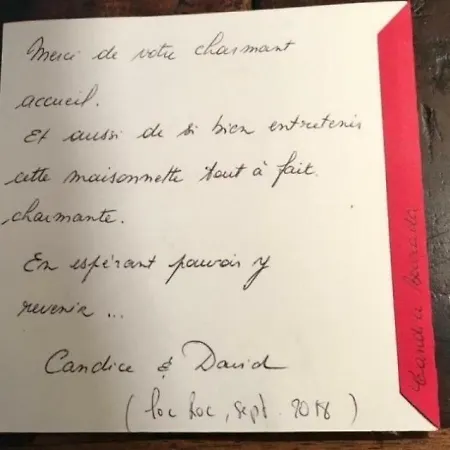 Merci de votre charmant
accueil.
Et aussi de si bien entretenir
cette maisonnette tout à fait
charmante.
En espérant pouvoir y
revenir ...
Candice & David
(loc hoc, sept. 2018)
Candice